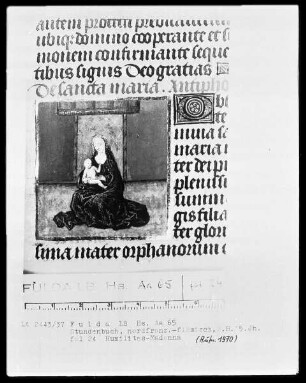 autem profecti predicauerunt
ubiq; domino cooperante et s
monem confirmante seque
tibus signis Deo gratias
De sancta maria. Antipho
O b
mina sa
maria
ter dei p
plenissi
summi
gis filia
ter glori
sima mater orphanorum c
FULDA LB Hs. Aa 65 fol 24
LA 2443/37 Fulda LB Hs. Aa 65
Stundenbuch, nordfranz.-flämisch, 2.H.15.Jh.
fol 24 Humilitas-Madonna
(Aufn. 1970)